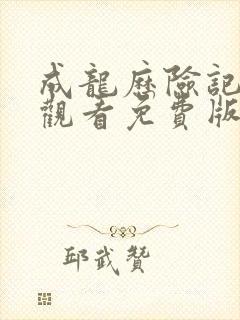 成龍歷險記
觀看免費版
邱武贊